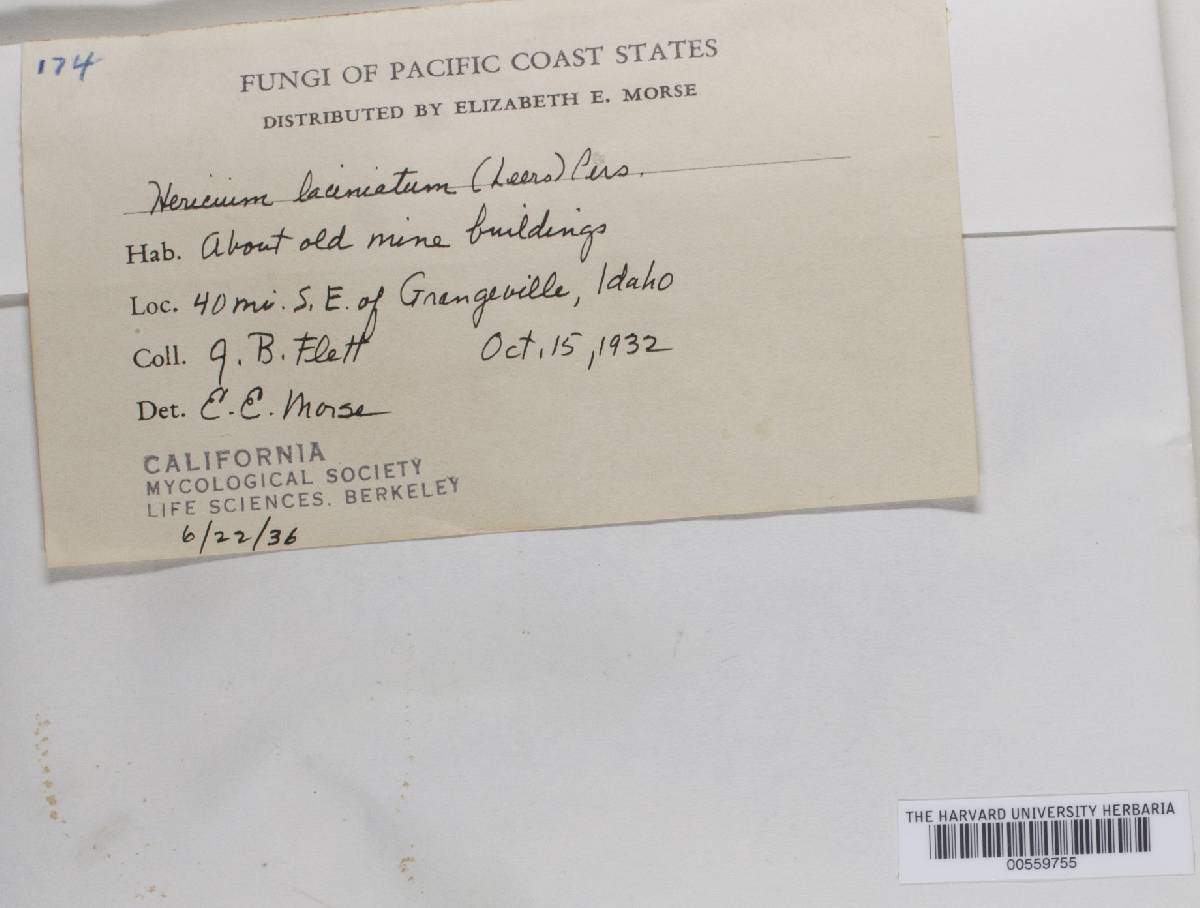 174
FUNGI OF PACIFIC COAST STATES
DISTRIBUTED BY ELIZABETH E. MORSE
Hericium laciniatum (Leers) Pers.
Hab. About old mine buildings
Loc. 40 mi. S. E. of Grangeville, Idaho
Coll. J. B. Flett Oct. 15, 1932
Det. E. E. Morse
CALIFORNIA
MYCOLOGICAL SOCIETY
LIFE SCIENCES. BERKELEY
6/22/36
THE HARVARD UNIVERSITY HERBARIA
00559755